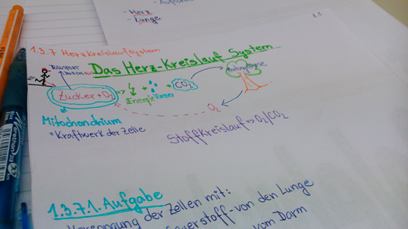 - Herz
- Lunge
1.3.7 Herzkreislaufsystem
Das Herz-Kreislauf System
Zucker + O₂ → Energie + Wasser + CO₂
O₂
Mitochondrium
• Kraftwerk der Zelle
Stoffkreislauf ⇒ O₂/CO₂
1.3.7.1. Aufgabe
der Zellen mit:
Sauerstoff - von den Lunge
vom Darm